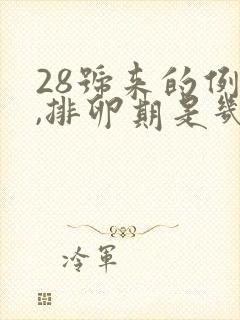 28號来的例
,排卵期是幾
冷軍